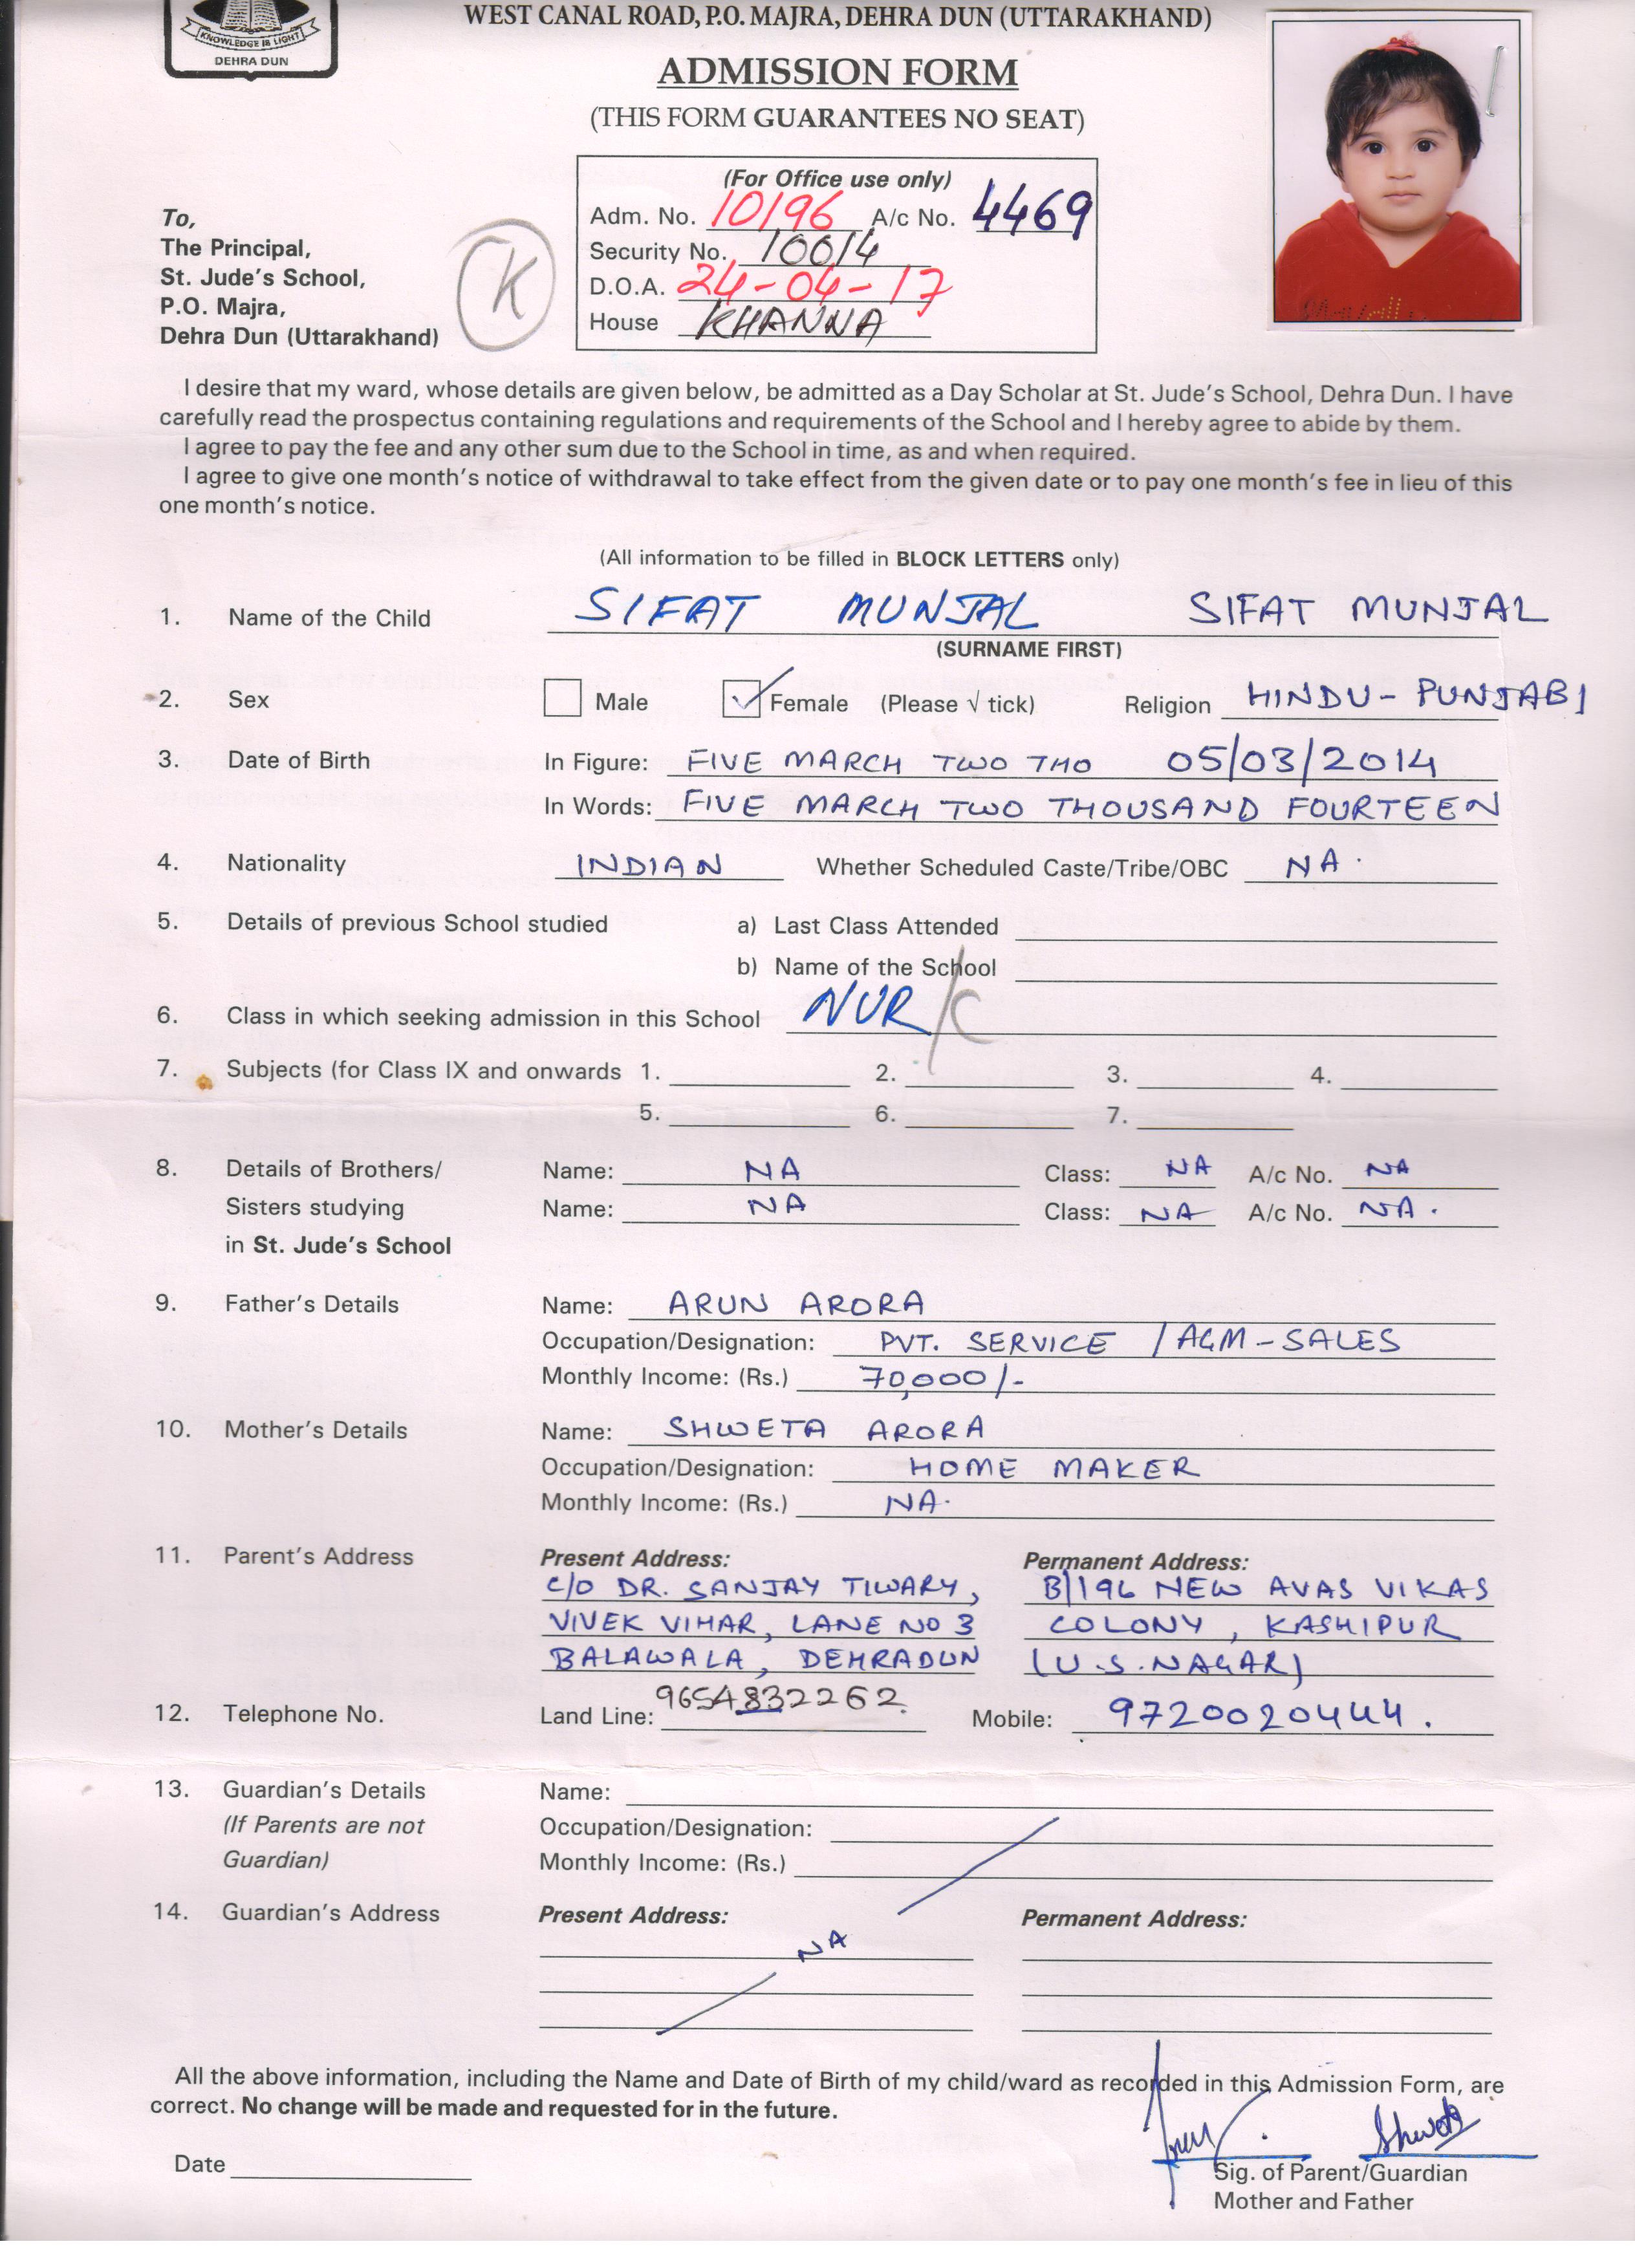 KNOWLEDGE IS LIGHT
DEHRA DUN
WEST CANAL ROAD, P.O. MAJRA, DEHRA DUN (UTTARAKHAND)
ADMISSION FORM
(THIS FORM GUARANTEES NO SEAT)
(For Office use only)
Adm. No. 10196 A/c No. 4469
Security No. 10014
D.O.A. 24-04-17
House KHANNA
To,
The Principal,
St. Jude's School,
P.O. Majra,
Dehra Dun (Uttarakhand)
K
I desire that my ward, whose details are given below, be admitted as a Day Scholar at St. Jude's School, Dehra Dun. I have
carefully read the prospectus containing regulations and requirements of the School and I hereby agree to abide by them.
I agree to pay the fee and any other sum due to the School in time, as and when required.
I agree to give one month's notice of withdrawal to take effect from the given date or to pay one month's fee in lieu of this
one month's notice.
(All information to be filled in BLOCK LETTERS only)
1. Name of the Child SIFAT MUNJAL SIFAT MUNJAL
(SURNAME FIRST)
2. Sex Male Female (Please √ tick) Religion HINDU - PUNJABI
3. Date of Birth In Figure: FIVE MARCH TWO THO 05/03/2014
In Words: FIVE MARCH TWO THOUSAND FOURTEEN
4. Nationality INDIAN Whether Scheduled Caste/Tribe/OBC NA.
5. Details of previous School studied a) Last Class Attended
b) Name of the School
6. Class in which seeking admission in this School NUR/C
7. Subjects (for Class IX and onwards 1. 2. 3. 4.
5. 6. 7.
8. Details of Brothers/ Name: NA Class: NA A/c No. NA
Sisters studying Name: NA Class: NA A/c No. NA.
in St. Jude's School
9. Father's Details Name: ARUN ARORA
Occupation/Designation: PVT. SERVICE / AGM - SALES
Monthly Income: (Rs.) 70,000/-
10. Mother's Details Name: SHWETA ARORA
Occupation/Designation: HOME MAKER
Monthly Income: (Rs.) NA.
11. Parent's Address Present Address: Permanent Address:
C/O DR. SANJAY TIWARY, B/196 NEW AVAS VIKAS
VIVEK VIHAR, LANE NO 3 COLONY, KASHIPUR
BALAWALA, DEHRADUN (U.S. NAGAR)
12. Telephone No. Land Line: 9654832262. Mobile: 9720020444.
13. Guardian's Details Name:
(If Parents are not Occupation/Designation:
Guardian) Monthly Income: (Rs.)
14. Guardian's Address Present Address: Permanent Address:
NA
All the above information, including the Name and Date of Birth of my child/ward as recorded in this Admission Form, are
correct. No change will be made and requested for in the future.
Shweta
Date
Sig. of Parent/Guardian
Mother and Father